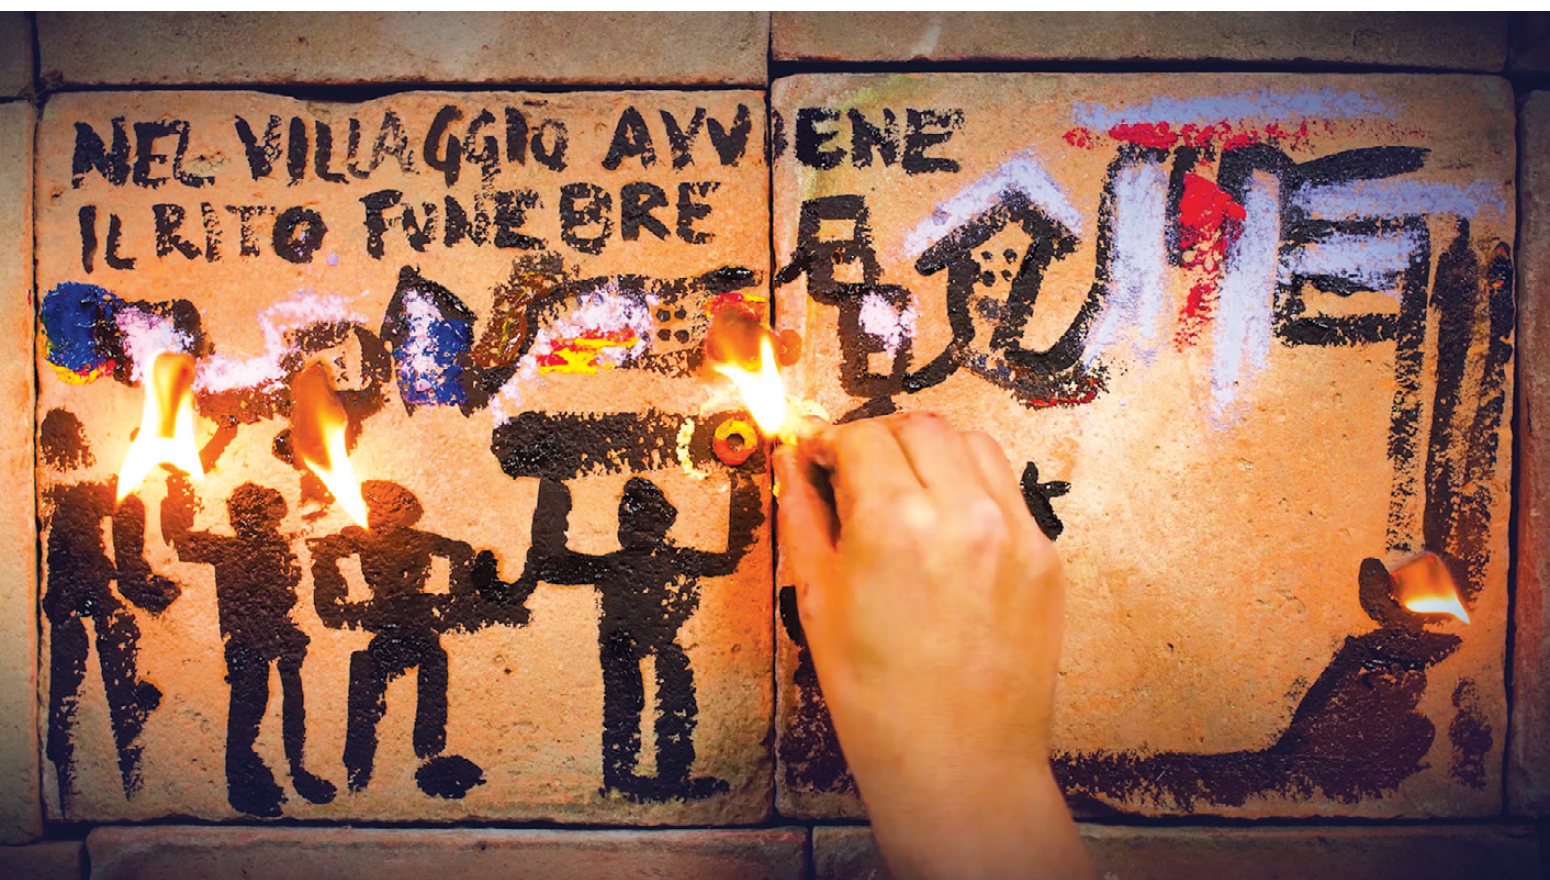 NEL VILLAGGIO AVVIENE
IL RITO FUNEBRE